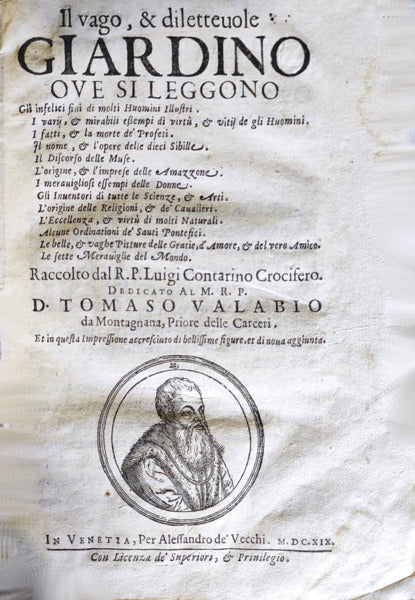 Il vago, & diletteuole
GIARDINO
OVE SI LEGGONO
Gli infelici fini di molti Huomini Illustri.
I varij, & mirabili essempi di virtù, & vitij de gli Huomini.
I fatti, & la morte de' Profeti.
Il nome, & l'opere delle dieci Sibille.
Il Discorso delle Muse.
L'origine, & l'imprese delle Amazzone.
I merauigliosi essempi delle Donne.
Gli Inuentori di tutte le Scienze, & Arti.
L'origine delle Religioni, & de' Caualieri.
L'Eccellenza, & virtù di molti Naturali.
Alcune Ordinationi de' Santi Pontefici.
Le belle, & vaghe Pitture delle Gratie, d'Amore, & del vero Amico.
Le sette Merauiglie del Mondo.
Raccolto dal R.P. Luigi Contarino Crocifero.
DEDICATO AL M. R. P.
D. TOMASO VALABIO
da Montagnana, Priore delle Carceri.
Et in questa Impressione accresciuto di bellissime figure, et di noua aggiunta.
IN VENETIA, Per Alessandro de' Vecchi. M.DC.XIX.
Con Licenza de' Superiori, & Priuilegio.